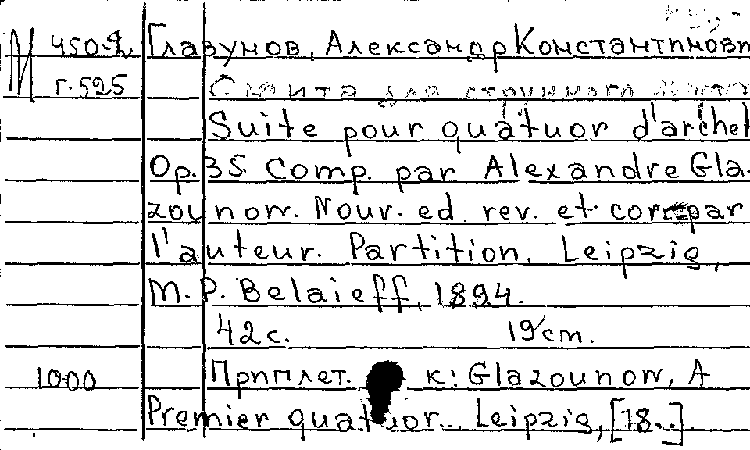 М 450-2 Глазунов, Александр Константинович
г.525 Сюита для струнного
Suite pour quatuor d'archet
Op. 35 Comp. par Alexandre Gla-
zounow. Nouv. ed. rev. et corr par
l'auteur. Partition. Leipzig,
M. P. Belaieff, 1894.
42 с. 19 cm.
1000 Приплет. к: Glazounow, A
Premier quatuor.. Leipzig, [18..].